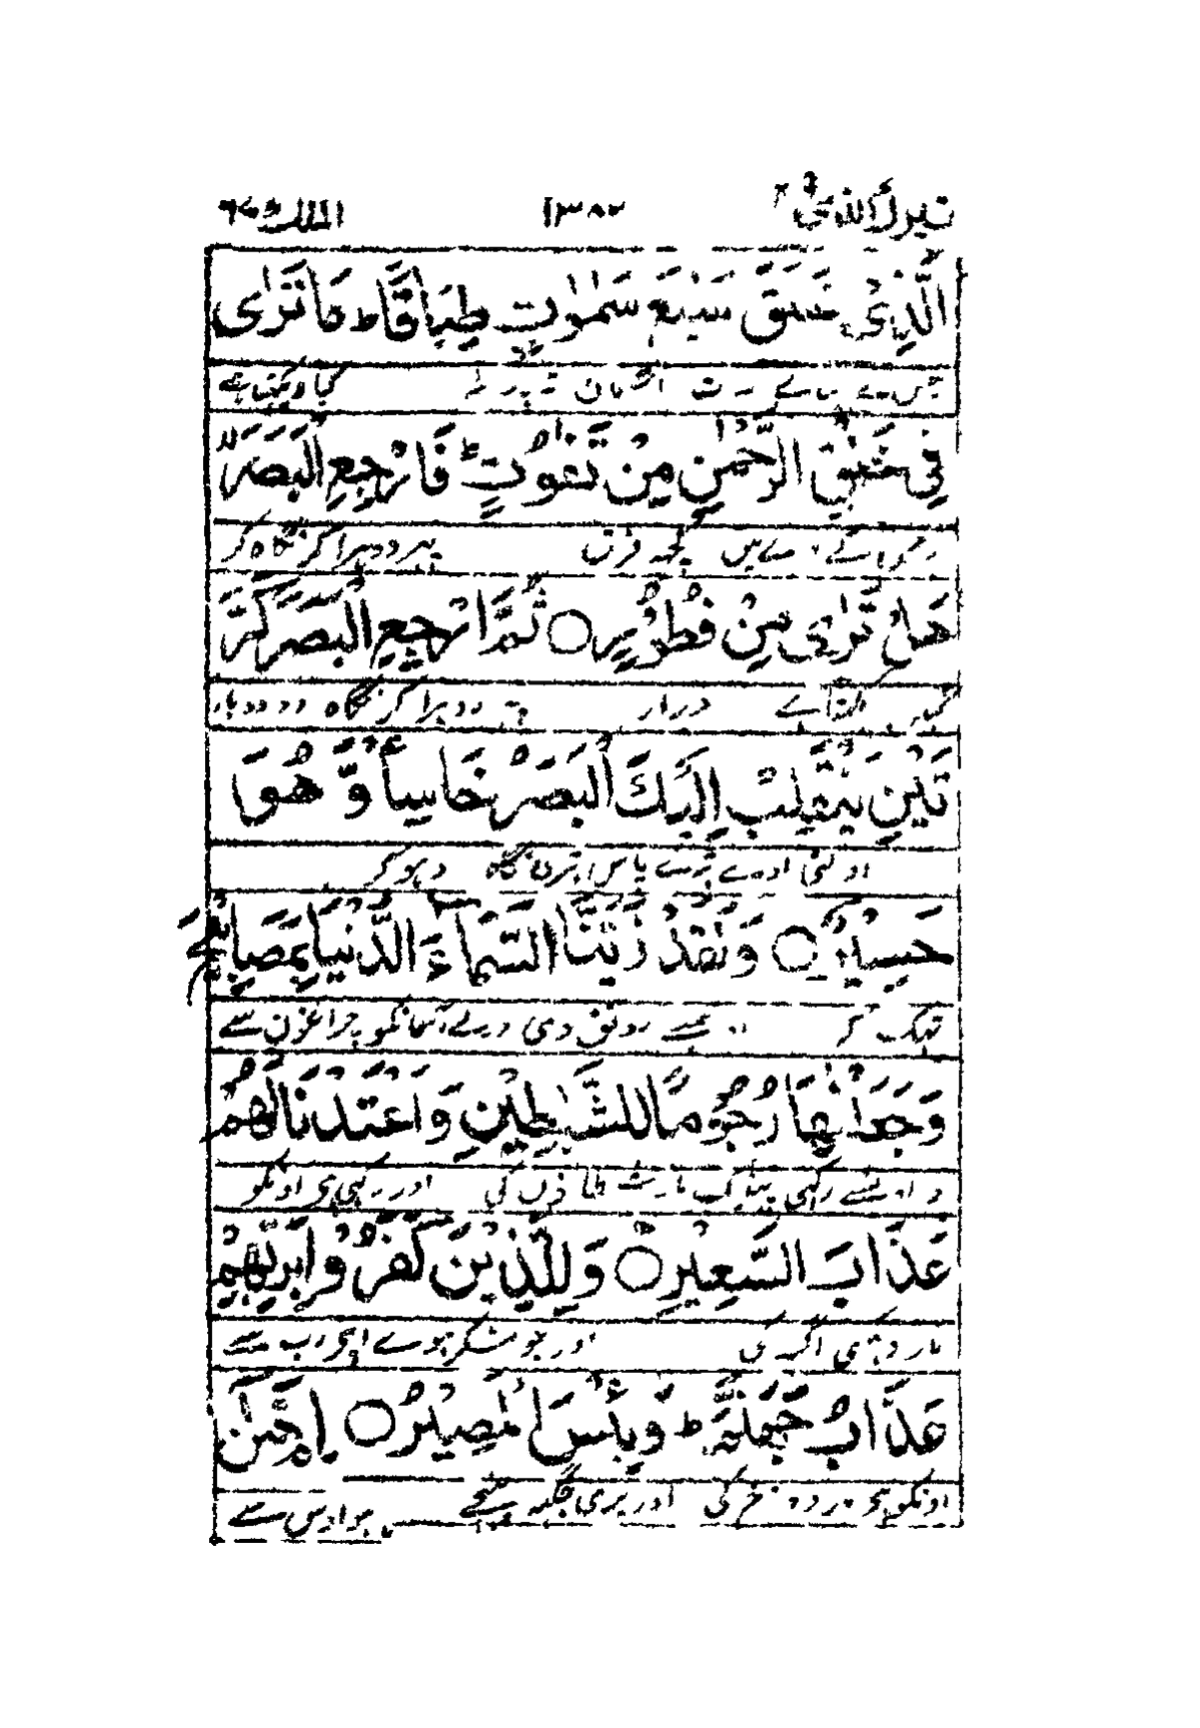 تبرك الذى ١٣٨٢ الملك ٦٧
الَّذِىْ خَلَقَ سَبْعَ سَمٰوٰتٍ طِبَاقًا ط مَا تَرٰى
جس نے بنائے سات آسمان تہ پر تہ کیا دیکھتا ہے
فِىْ خَلْقِ الرَّحْمٰنِ مِنْ تَفٰوُتٍ ط فَارْجِعِ الْبَصَرَ لا
میں کچھ فرق پہر دوہرا کر نگاہ کر
هَلْ تَرٰى مِنْ فُطُوْرٍ ○ ثُمَّ ارْجِعِ الْبَصَرَ كَرَّ
دراڑ دوہرا کر نگاہ دو دو بار
تَيْنِ يَنْقَلِبْ اِلَيْكَ الْبَصَرُ خَاسِئًا وَّ هُوَ
اولٹی آوے تیرے پاس تیری نگاہ رد ہو کر
حَسِيْرٌ ○ وَلَقَدْ زَيَّنَّا السَّمَآءَ الدُّنْيَا بِمَصَابِيْحَ
تہک کر ہمنے رونق دی ورلے آسمانکو چراغوں سے
وَجَعَلْنٰهَا رُجُوْمًا لِلشَّيٰطِيْنِ وَاَعْتَدْنَا لَهُمْ
اونسے رکھی پھینک مار شیطانوں کی اور رکھی ہی اونکو
عَذَابَ السَّعِيْرِ ○ وَلِلَّذِيْنَ كَفَرُوْا بِرَبِّهِمْ
مار دہکتی آگ کی اور جو منکر ہوے اپنے رب سے
عَذَابُ جَهَنَّمَ ط وَبِئْسَ الْمَصِيْرُ ○
اونکو ہی مار دوزخ کی اور بری جگہہ پہنچے